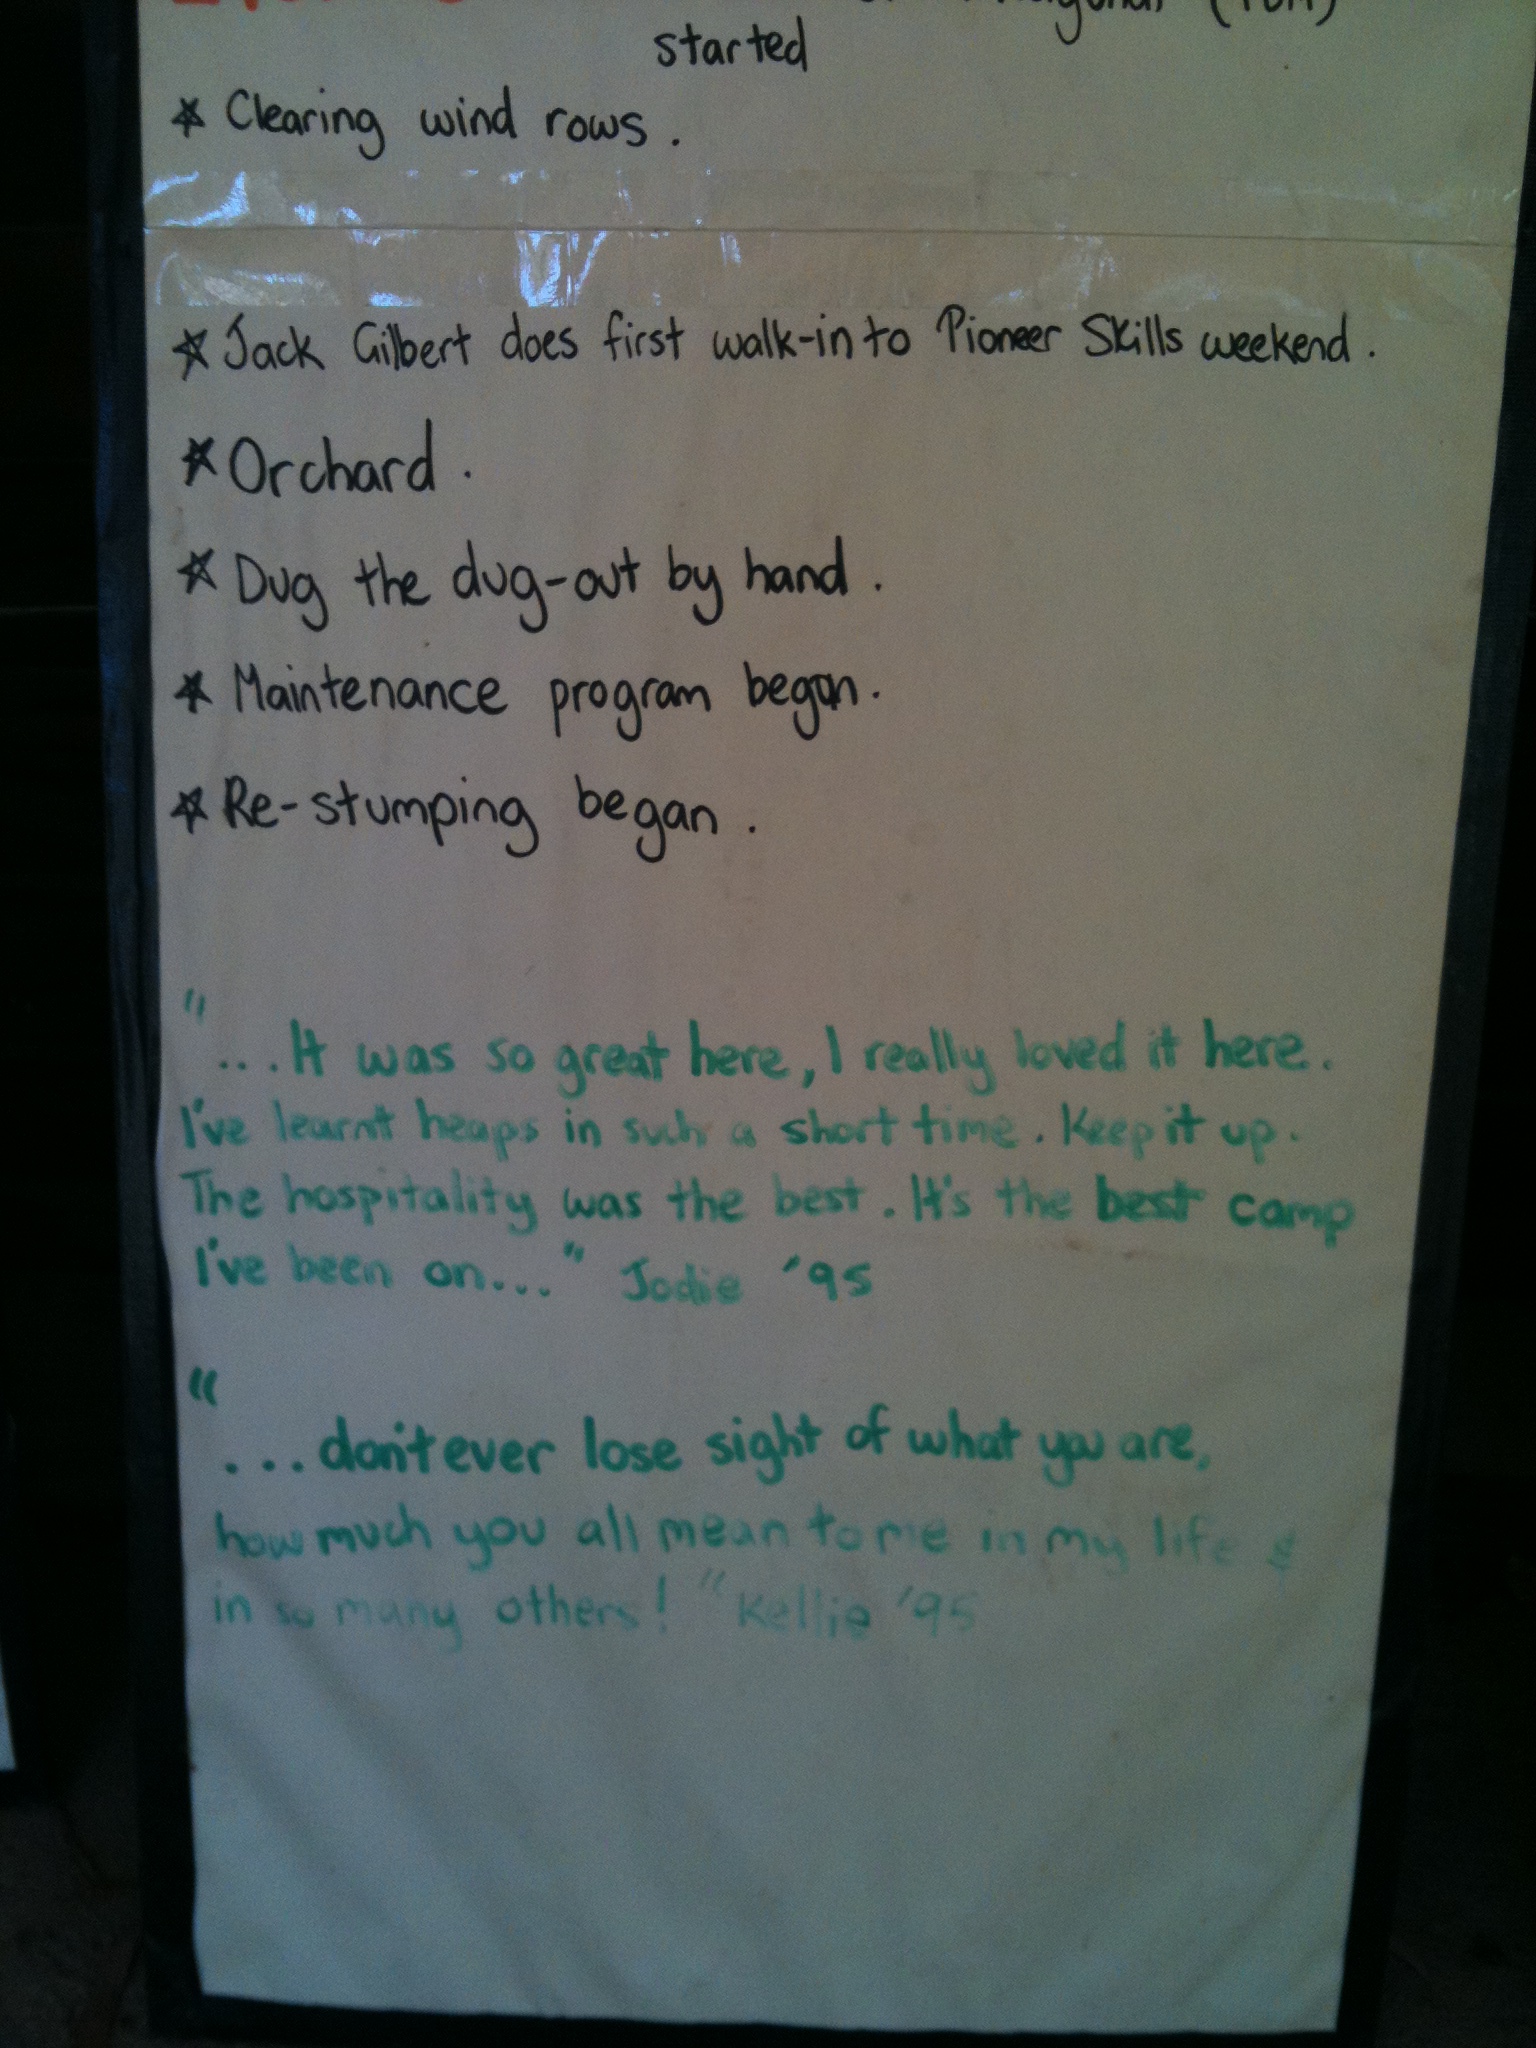 started
* Clearing wind rows.
* Jack Gilbert does first walk-in to Pioneer Skills weekend.
* Orchard.
* Dug the dug-out by hand.
* Maintenance program began.
* Re-stumping began.
"...It was so great here, I really loved it here.
I've learnt heaps in such a short time. Keep it up.
The hospitality was the best. It's the best camp
I've been on..." Jodie '95
"...don't ever lose sight of what you are,
how much you all mean to me in my life &
in so many others!" Kellie '95